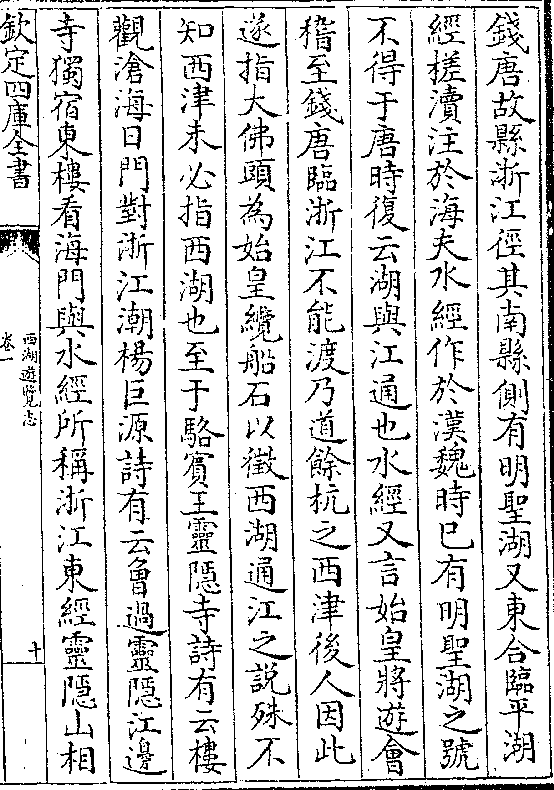 錢唐故縣浙江徑其南縣側有明聖湖又東合臨平湖
經槎瀆注於海夫水經作於漢魏時已有明聖湖之號
不得于唐時復云湖與江通也水經又言始皇將遊會
稽至錢唐臨浙江不能渡乃道餘杭之西津後人因此
遂指大佛頭為始皇纜船石以徵西湖通江之說殊不
知西津未必指西湖也至于駱賓王靈隱寺詩有云樓
觀滄海日門對浙江潮楊巨源詩有云曾過靈隱江邊
寺獨宿東樓看海門與水經所稱浙江東經靈隱山相
欽定四庫全書
西湖遊覽志
卷一
十